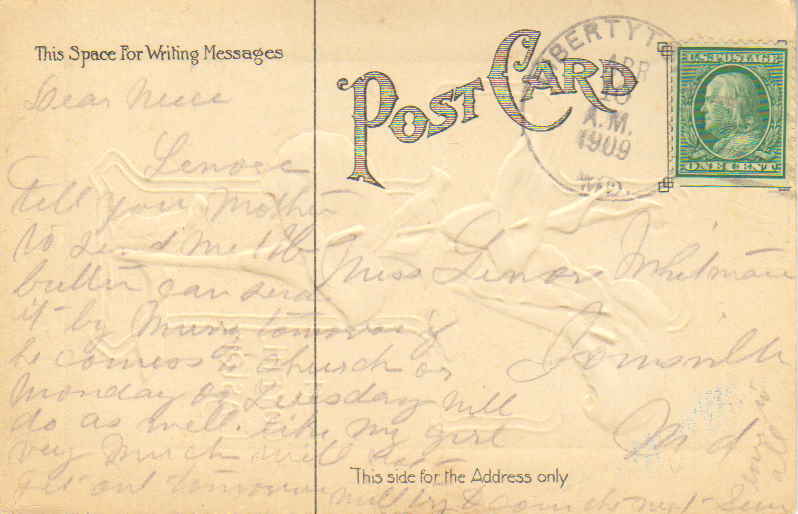 This Space For Writing Messages
POST CARD
LIBERTYT
APR
10
A.M.
1909
MD.
U.S. POSTAGE
ONE CENT
Dear Niece
Lenore
tell your Mother
to send me 1 lb
butter can send
it by Murry tomorrow if
he comes to church or
Monday or Tuesday will
do as well. like my girl
very much will not
get out tomorrow will try & come do next Sun
Miss Lenore Whitman
Ijamsville
Md
love to
all
This side for the Address only